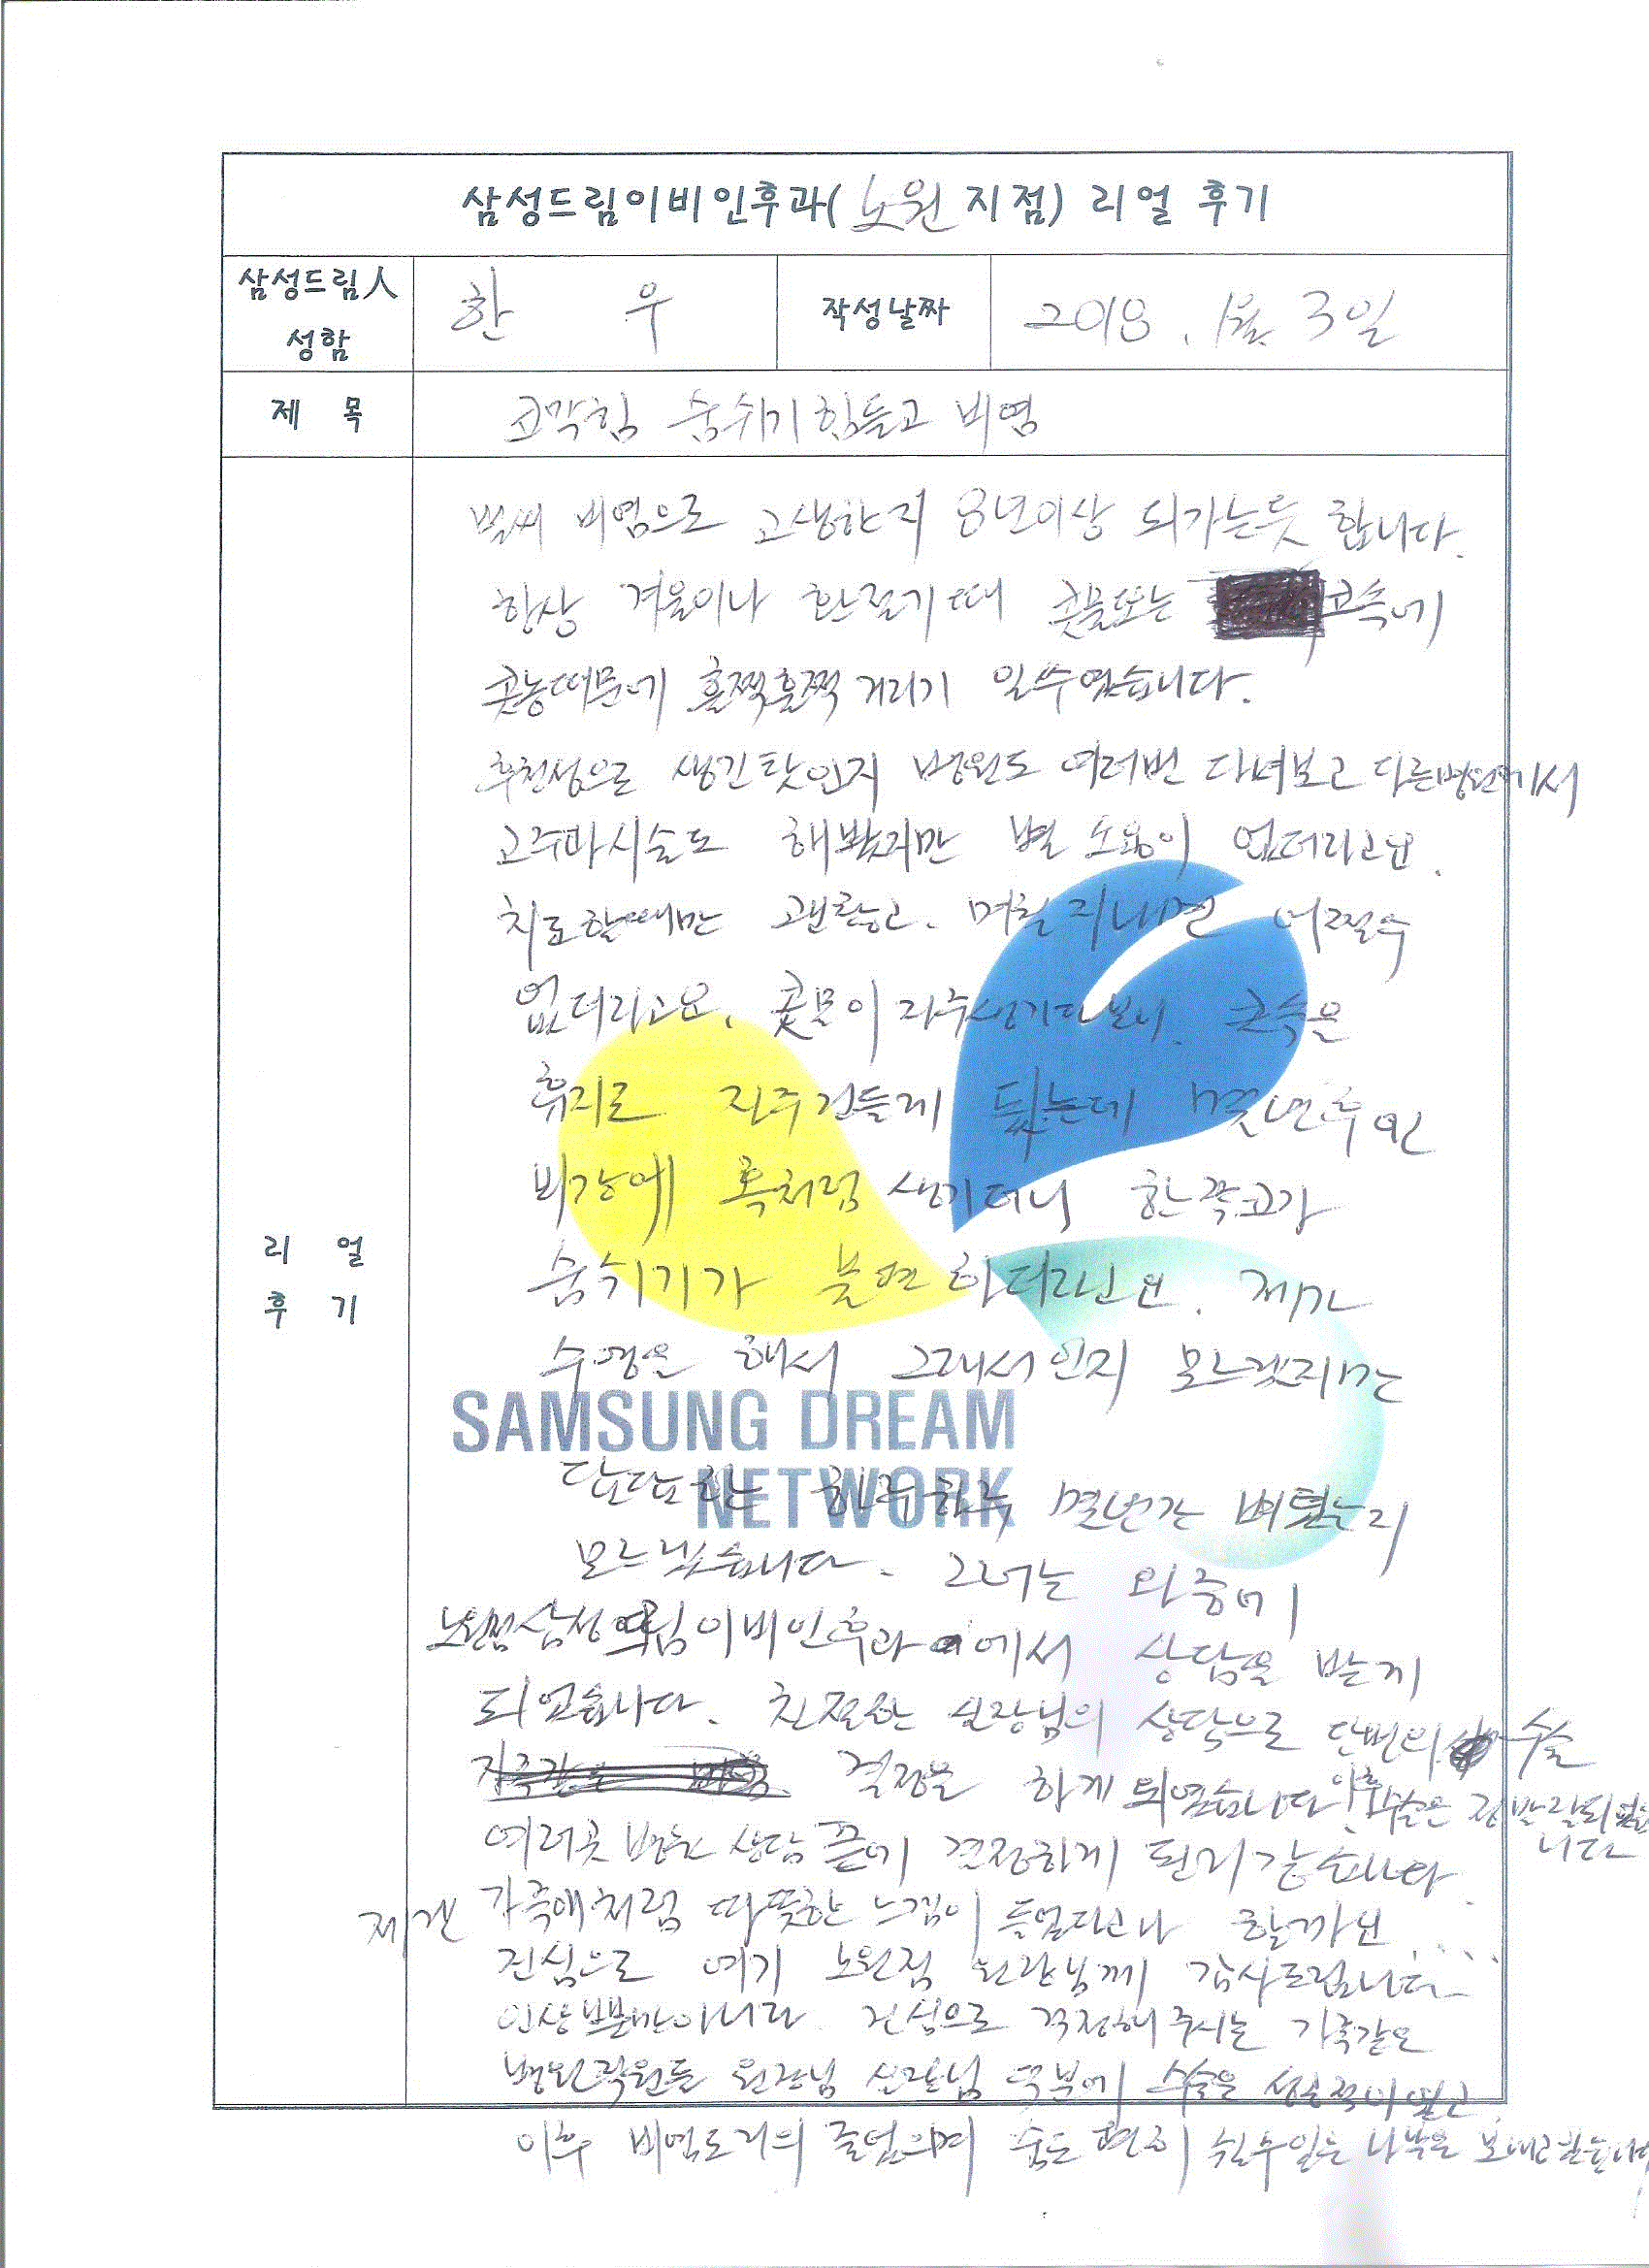 삼성드림이비인후과( 노원 지점) 리얼 후기
삼성드림人 성함
한 우
작성날짜
2018. 1월 3일
제 목
코막힘 숨쉬기힘들고 비염
리 얼 후 기
벌써 비염으로 고생한지 8년이상 되가는듯 합니다.
항상 겨울이나 환절기때 콧물또는 코속에
콧농때문에 훌쩍훌쩍 거리기 일수였습니다.
후천성으로 생긴탓인지 병원도 여러번 다녀보고 다른병원에서
고주파시술도 해봤지만 별 소용이 없더라고요.
치료할때만 괜찮고. 며칠지나면 어쩔수
없더라고요. 콧물이 자주생기다보니. 코속은
휴지로 자주건들게 됬는데 몇년후인
비강에 혹처럼 생기더니 한쪽코가
숨쉬기가 불편하더라고요. 제가
수영을 해서 그래서인지 모르겠지만
SAMSUNG DREAM
NETWORK
답답한 하루하루 몇년간 버텼는지
모르겠습니다. 그러는 와중에
노원점삼성드림이비인후과에서 상담을 받게
되었습니다. 친절한 실장님의 상담으로 단번의 수술
결정을 하게 되었습니다.
여러곳 병원 상담 끝에 결정하게 된거 같습니다.
가족애처럼 따뜻한 느낌이 들었다고나 할까요
진심으로 여기 노원점 원장님께 감사드립니다...
인상뿐만아니라 진심으로 걱정해 주시는 가족같은
병원직원들 원장님 실장님 덕부에 수술은 성공적이였고
이후 비염도 거의 줄었으며 숨도 편히 쉴수있는 나날을 보내고